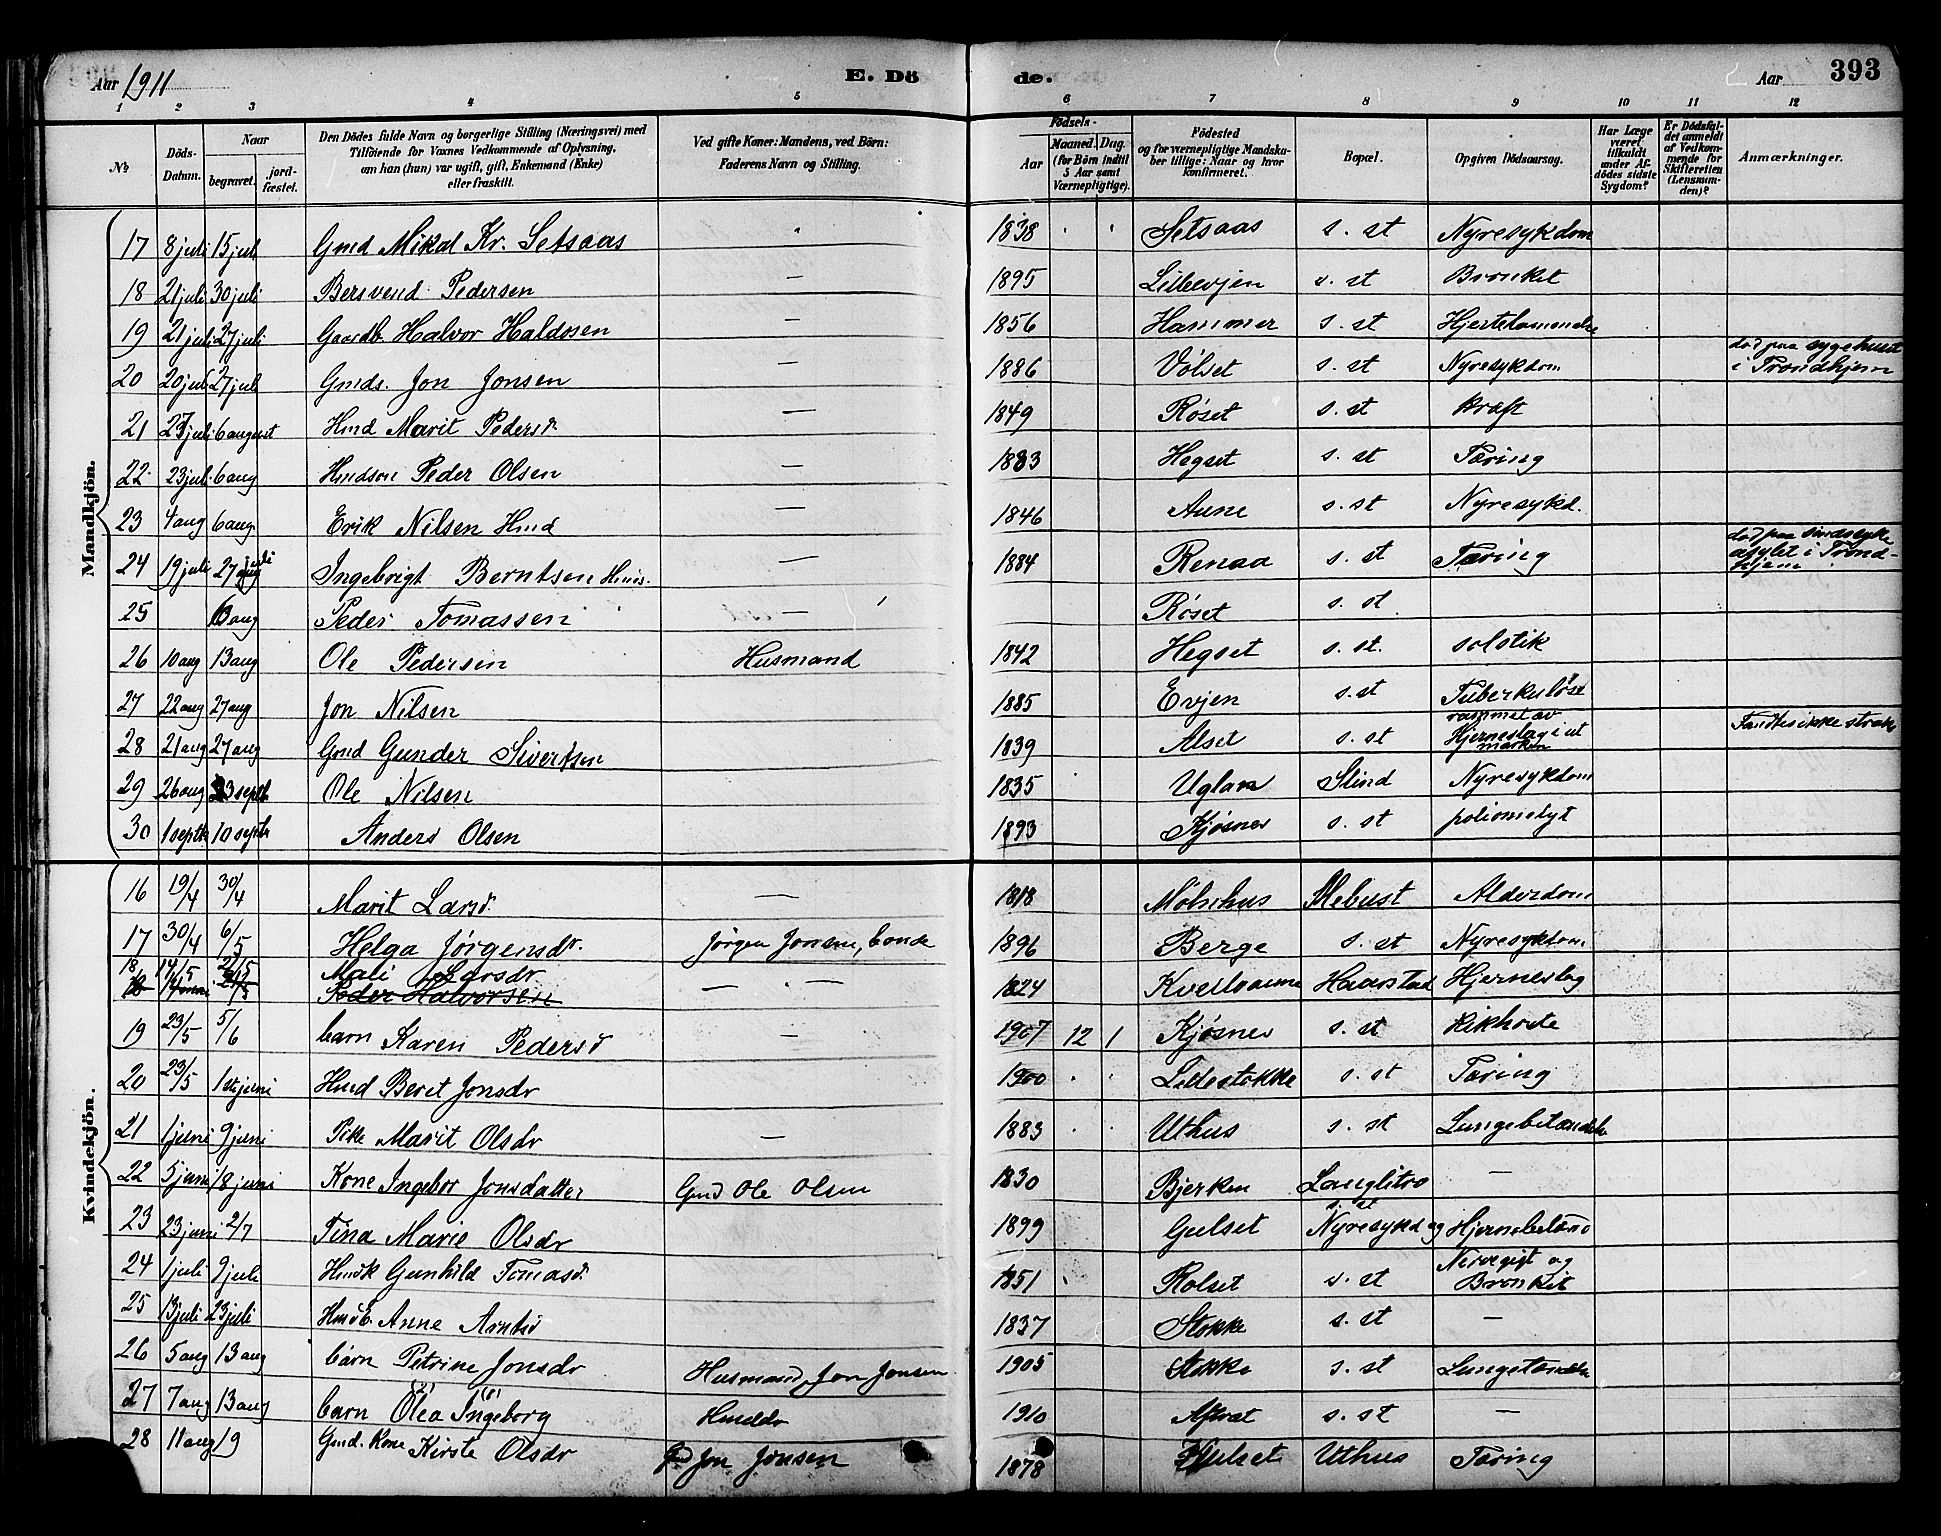 Aar 1911 E. Dö de. Aar 393
1 2 3 4 5 6 7 8 9 10 11 12
№ Döds-Datum. Naar begravet. jordfæstet. Den Dödes fulde Navn og borgerlige Stilling (Næringsvei) med Tilföiende for Voxnes Vedkommende af Oplysning, om han (hun) var ugift, gift, Enkemand (Enke) eller fraskilt. Ved gifte Koner: Mandens, ved Börn: Faderens Navn og Stilling. Födsels- Aar Maaned. Dag. (for Börn indtil 5 Aar samt Værnepligtige). Födested og for værnepligtige Mandskaber tillige: Naar og hvor konfirmeret. Bopæl. Opgiven Dödsaarsag. Har Læge været tilkaldt under Afdödes sidste Sygdom? Er Dödsfaldet anmeldt af Vedkommende for Skifteretten (Lensmanden)? Anmærkninger.
Mandkjön.
17 8 juli 15 juli Gmd Mikal Kr. Setsaas 1838 Setsaas s. st Nyresykdom
18 21 juli 30 juli Bersvend Pedersen — 1895 Lillevjen s. st Bronket
19 21 juli 27 juli Gaardb. Halvor Haldosen — 1856 Hammer s. st Hjertelammelse
20 20 juli 27 juli Gmds. Jon Jonsen — 1886 Vølset s. st Nyresykdom død paa sygehuset i Trondhjem
21 27 juli 6 august Hmd Marit Pedersd. — 1849 Røset s. st Kræft
22 23 juli 6 aug Hmdson Peder Olsen — 1883 Hegset s. st Tæring
23 4 aug 6 aug. Erik Nilsen Hmd — 1846 Aune s. st Nyresykd.
24 19 juli 27 juli Ingebrigt Berntsen Hmds. — 1884 Renaa s. st Tæring død paa sindssyke asylet i Trondhjem
25 6 aug Peder Tomassen — Røset s. st.
26 10 aug 13 aug Ole Pedersen Husmand 1842 Hegset s. st. solstik
27 22 aug 27 aug Jon Nilsen 1885 Evjen s. st Tuberkuløse
28 21 aug 27 aug Gmd Gunder Sivertsen 1839 Alset s. st rammet av Hjerneslag i utmarken Fandtes ikke straks
29 26 aug 3 septb. Ole Nilsen 1835 Uglan Slind Nyresykdom
30 1 septb 10 septb Anders Olsen 1893 Kjøsnes s. st poliomelyt
Kvindekjön.
16 19/4 30/4 Marit Larsd. — 1818 Møhrhus Slebust Alderdom
17 30/4 6/5 Helga Jørgensdr. Jørgen Jonsen, bonde 1896 Berge s. st Nyresykdom
18 14/5 21/5 Mali Larsdr
Peder Halvorsen — — 1824 Kveilvaune Haarstad Hjerneslag
19 23/5 5/6 barn Karen Pedersd — 1907 12 1 Kjøsnes s. st Kikhoste
20 23/5 1ste juni Hmd Beret Jonsdr 1900 Lillestokke s. st Tæring
21 1 juni 9 juni Pike Marit Olsdr — 1883 Uthus s. st Lungebetændelse
22 5 juni 18 juni Kone Ingebor Jonsdatter Gmd Ole Olsen 1830 Bjerken Langlitrø —
23 23 juni 2/7 Tina Marie Olsdr 1899 Gulset s. st Nyresykd og Hjernebetænd
24 1 juli 9 juli Hmdk Gunhild Tomasd. 1851 Rolset s. st Nervegigt og Bronkit
25 13 juli 23 juli HmdE. Anne Arntsd 1837 Stokke s. st —
26 5 aug 13 aug barn Petrine Jonsdr Husmand Jon Jonsen 1905 Stokke s. st Lungetændelse
27 7 aug 13 aug barn Olea Ingeborg Hmddr 1910 Aftret s. st —
28 11 aug 19 Gmd. Kone Kirste Olsdr Gmd Jon Jonsen 1878 Hulset Uthus Tæring